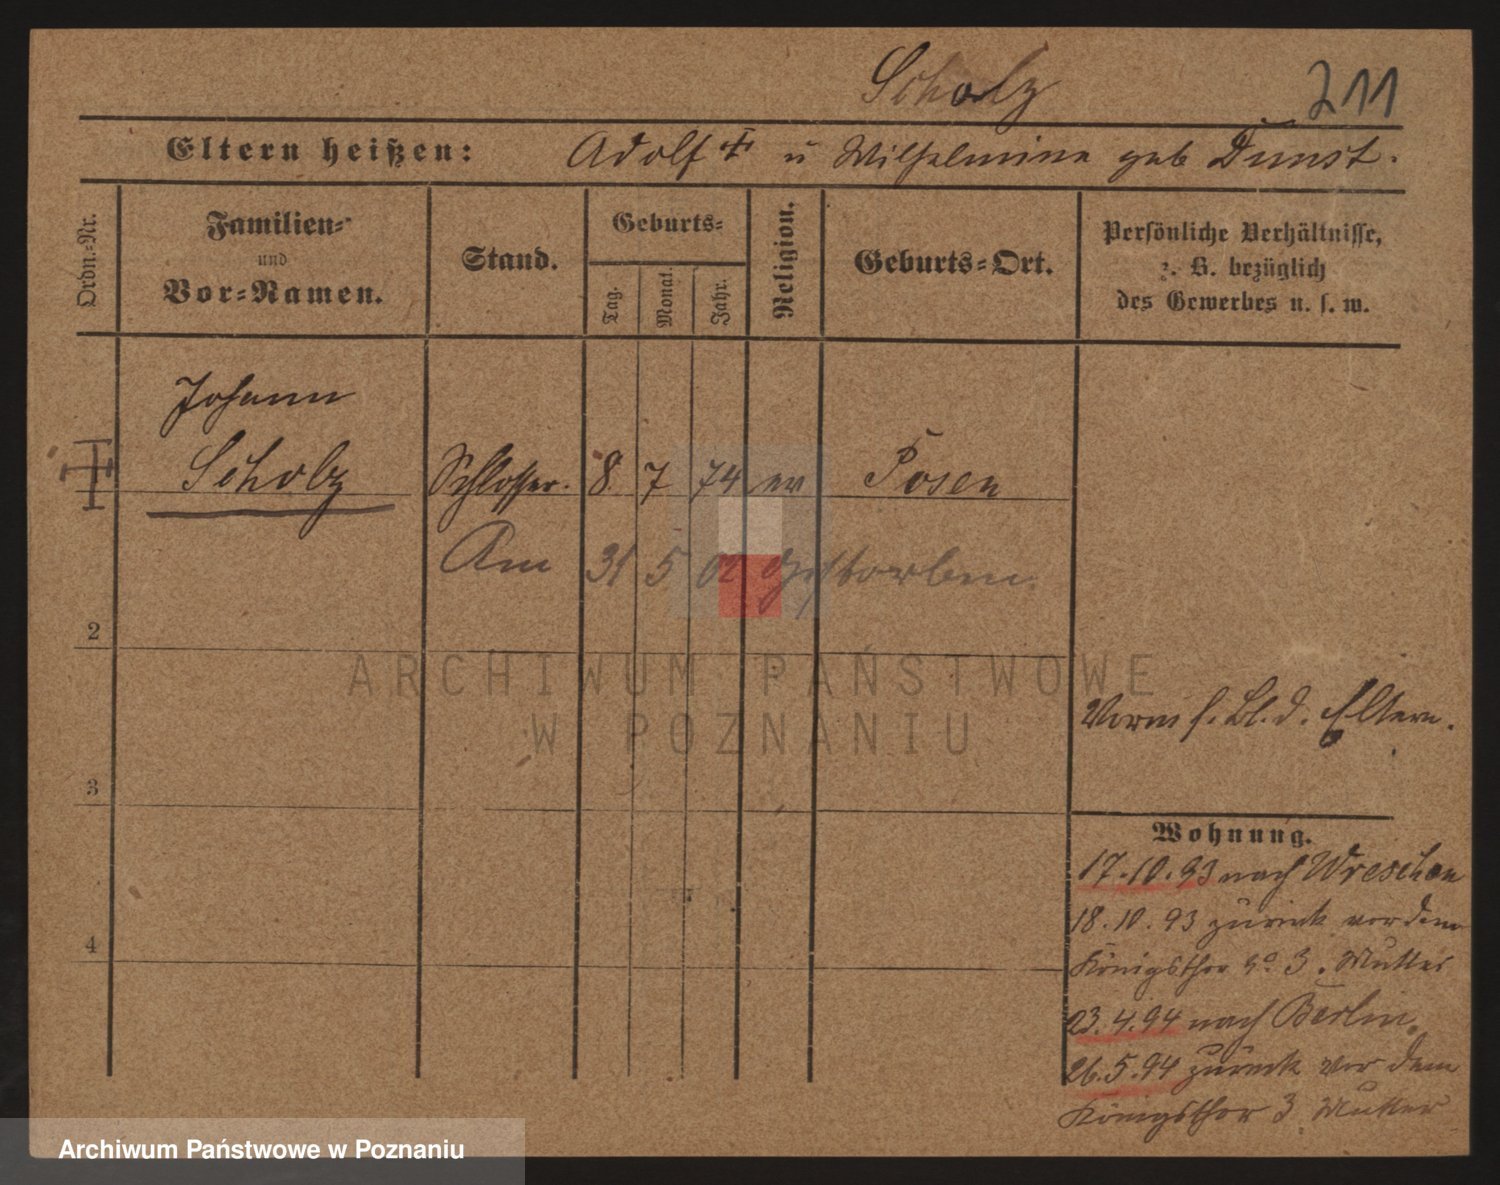 Scholz 211
Eltern heißen: Adolf ✝ u Wilhelmine geb Dunst.
Ordn.-Nr.
Familien-
und
Vor-Namen.
Stand.
Geburts-
Tag.
Monat.
Jahr.
Religion.
Geburts-Ort.
Persönliche Verhältnisse,
z. B. bezüglich
des Gewerbes u. s. w.
Johann
Scholz Schlosser. 8. 7 74 ev Posen
Am 31 5 02 gestorben.
2
ARCHIWUM PAŃSTWOWE
W POZNANIU
Vorm s. Bl. d. Eltern.
3
Wohnung.
17.10.93 nach Wreschen
18.10.93 zurück vor dem
4
Königsthor No 3. Mutter
23.4.94 nach Berlin.
26.5.94 zurück vor dem
Königsthor 3. Mutter
Archiwum Państwowe w Poznaniu